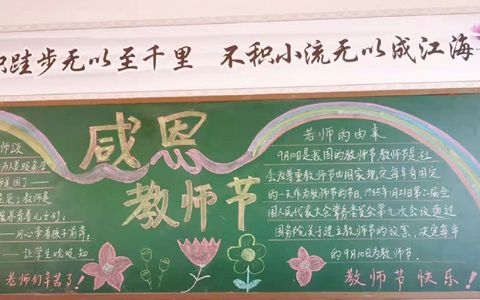 积跬步无以至千里 不积小流无以成江海
感恩
教师节
师颂
老师们辛苦了！
老师的由来
9月10日是我国的教师节,教师节是社
会为尊重教师由国家规定每年有固定
的一天作为教师节的节日,1985年1月21日第六届全
国人民代表大会常务委员会第九次会议通过
国务院关于建立教师节的议案,决定每年
的9月10日为教师节.
教师节快乐！